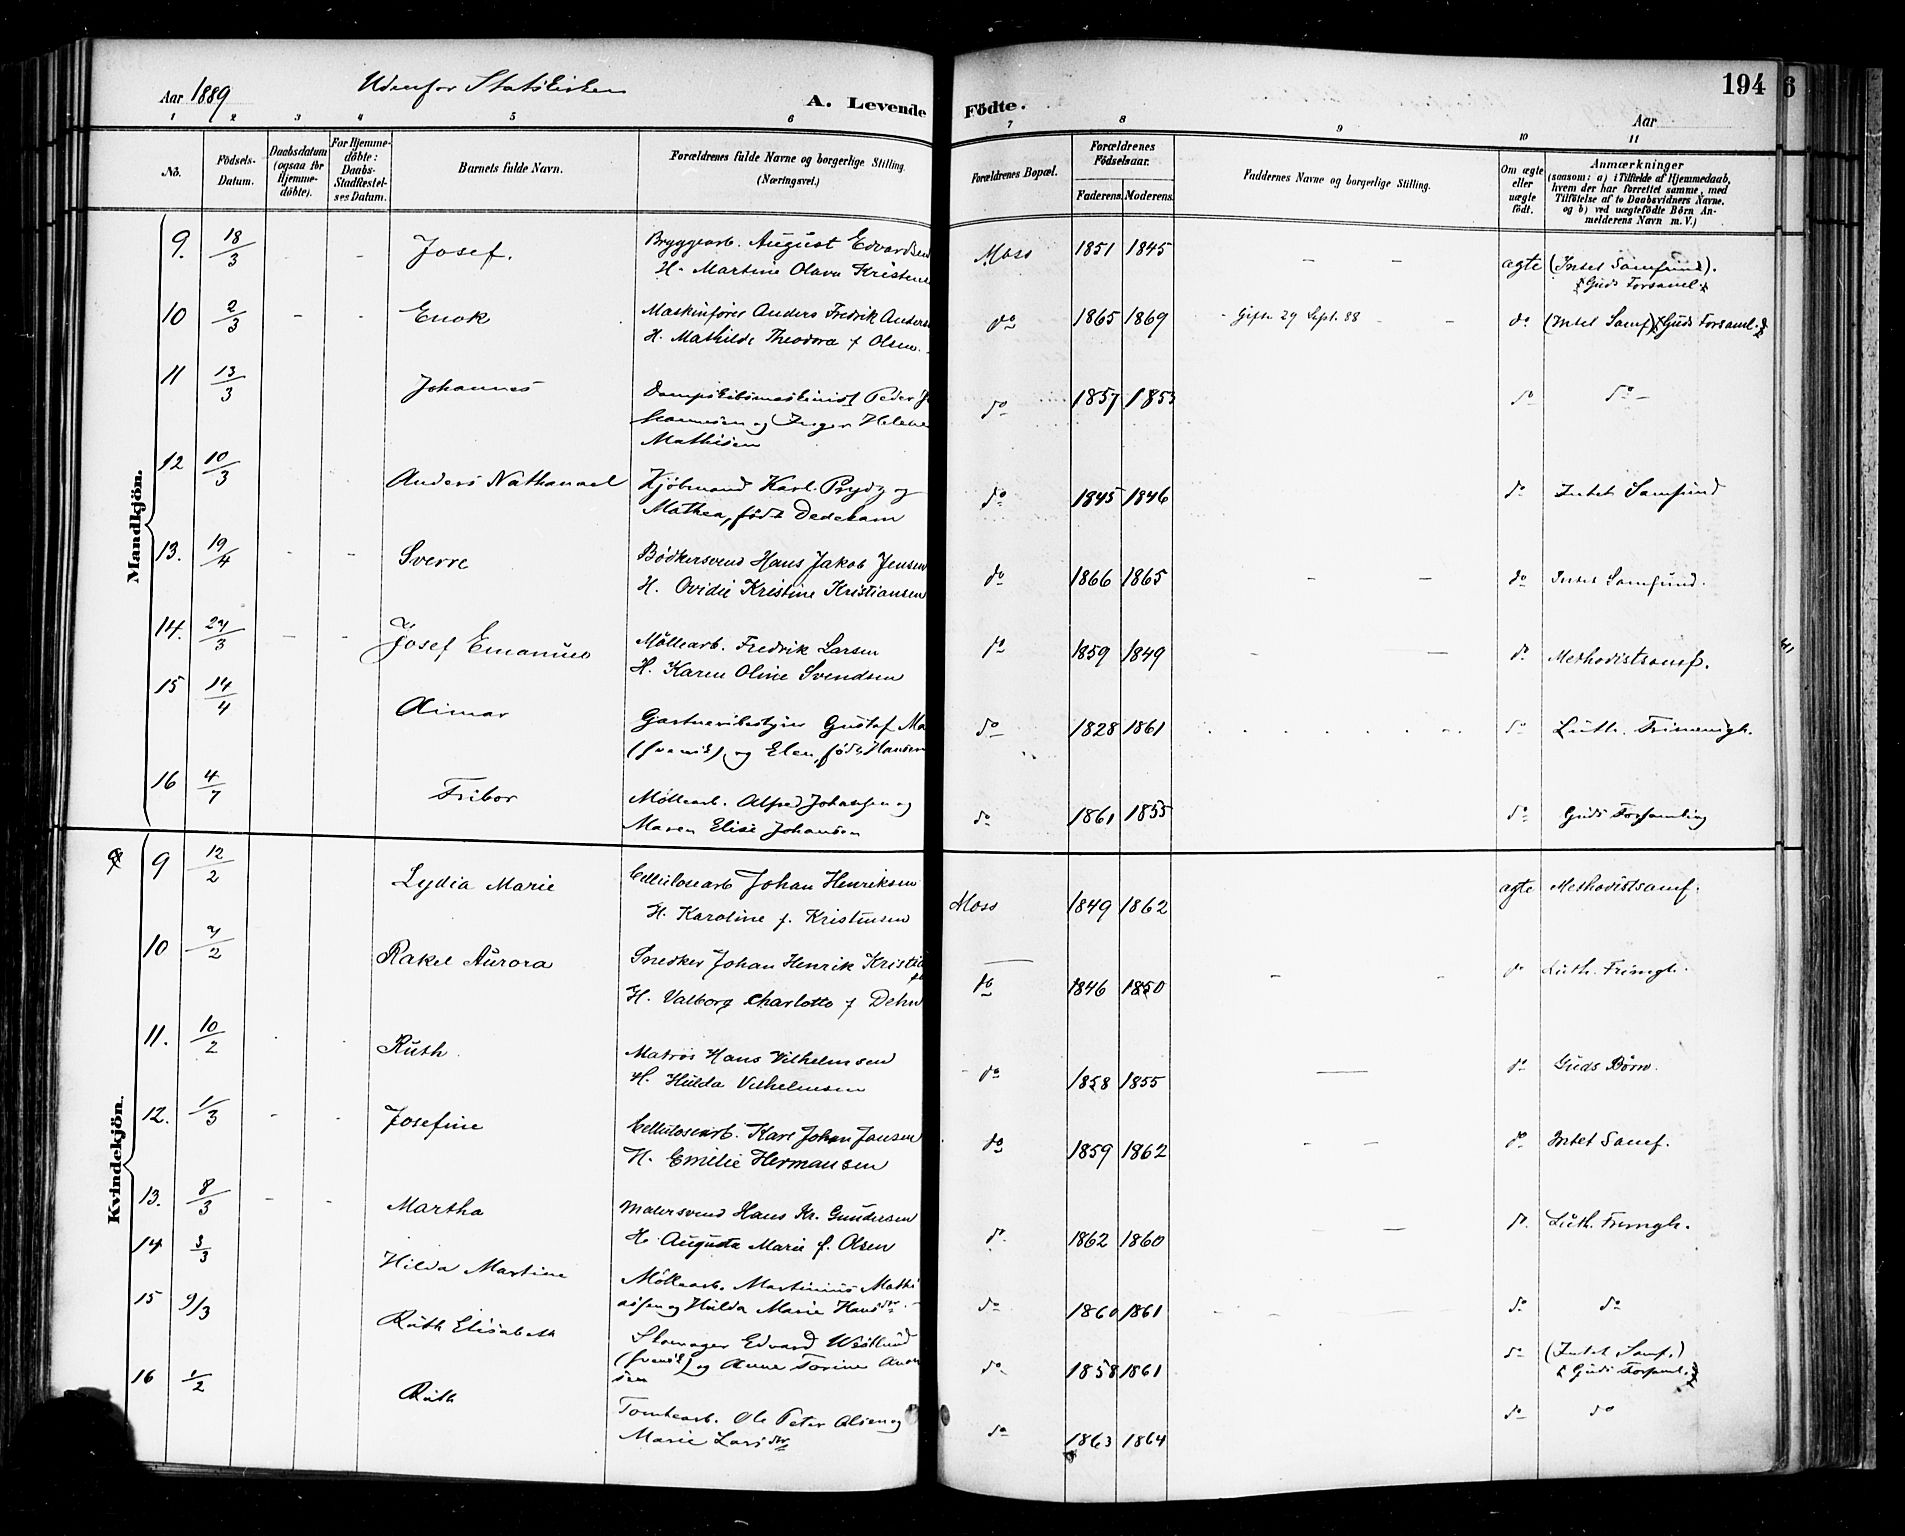 Aar 1889 Udenfor Statskirken A. Levende Födte. 194 6
Aar
1 2 3 4 5 6 7 8 9 10 11
No. Födsels-Datum. Daabsdatum (ogsaa for Hjemmedöbte). For Hjemmedöbte: Daabs-Stadfæstelses Datum. Barnets fulde Navn. Forældrenes fulde Navne og borgerlige Stilling (Næringsvei.) Forældrenes Bopæl. Forældrenes Födselsaar. Faderens. Moderens. Faddernes Navne og borgerlige Stilling. Om ægte eller uægte födt. Anmærkninger (saasom: a) i Tilfælde af Hjemmedaab, hvem der har forrettet samme, med Tilföielse af to Daabsvidners Navne, og b) ved uægtefödte Börn Anmelderens Navn m. V.)
Mandkjön.
9. 18/3 - - Josef. Bryggearb. August Edvardsen Moss 1851 1845 - - ægte (Intet Samfund).
H. Martine Olava Kristens Guds Forsaml.
10 2/3 - - Enok Maskinfører Anders Fredrik Anders do 1865 1869 - Gifte 29 Sept. 88 - - do (Intet Samf) Guds Forsaml.
H. Mathilde Theodora f Olsen.
11 13/3 Johannes Dampskibsmaskinist Peder Jo do 1857 1853 do do -
hannesen og Inger Helene
Mathisen
12 10/3 Anders Nathanael Kjøbmand Karl Prydz og do 1845 1846 do Intet Samfund
Mathea, født Dedekam
13. 19/4 - - Sverre Bødkersvend Hans Jakob Jensen do 1866 1865 - - do Intet Samfund.
H. Ovidie Kristine Kristiansen
14. 27/3 - - Josef Emanuel Møllearb. Fredrik Larsen do 1859 1849 - - do Methodistsamf.
H. Karen Oline Svendsen
15 14/4 Aimar Gartneribestyrer Gustaf Ma do 1828 1861 do Luth. Frimenigh.
(svensk) og Elen, født Hansen
16 4/7 Fribor Møllearb. Alfred Johansen og do 1861 1855 do Guds Forsamling
Maren Elise Johansen
Kvindekjön.
9 12/2 Lydia Marie Cellulosearb Johan Henriksen Moss 1849 1862 ægte Methodistsamf.
H. Karoline f. Kristensen
10 7/2 Rakel Aurora Snedker Johan Henrik Kristia do 1846 1850 - - do Luth. Frimgh.
H. Valborg Charlotte f Dehn
11. 10/2 Ruth Matros Hans Vilhelmsen do 1858 1855 do Guds Børn.
H. Hulda Vilhelmsen
12. 1/3 - - Josefine Cellulosearb. Karl Johan Jansen do 1859 1862 - - do Intet Samf.
H. Emilie Hermansen
13. 8/3 - - Martha Malersvend Hans Kr. Gundersen do 1862 1860 - - do Luth. Frimgh.
H. Augusta Marie f. Olsen
14 3/3 Hilda Martine Møllearb. Martinius Mathi do 1860 1861 do do
asen og Hulda Marie Hansdtr.
15 9/3 Ruth Elisabeth Skomager Edvard Westlund do 1858 1861 do (Intet Samf.)
(svensk) og Anne Torine Ander Guds Forsaml.
sen
16 1/2 Ruth Tomtearb. Ole Peter Olsen og do 1863 1864 do do
Marie Larsdtr